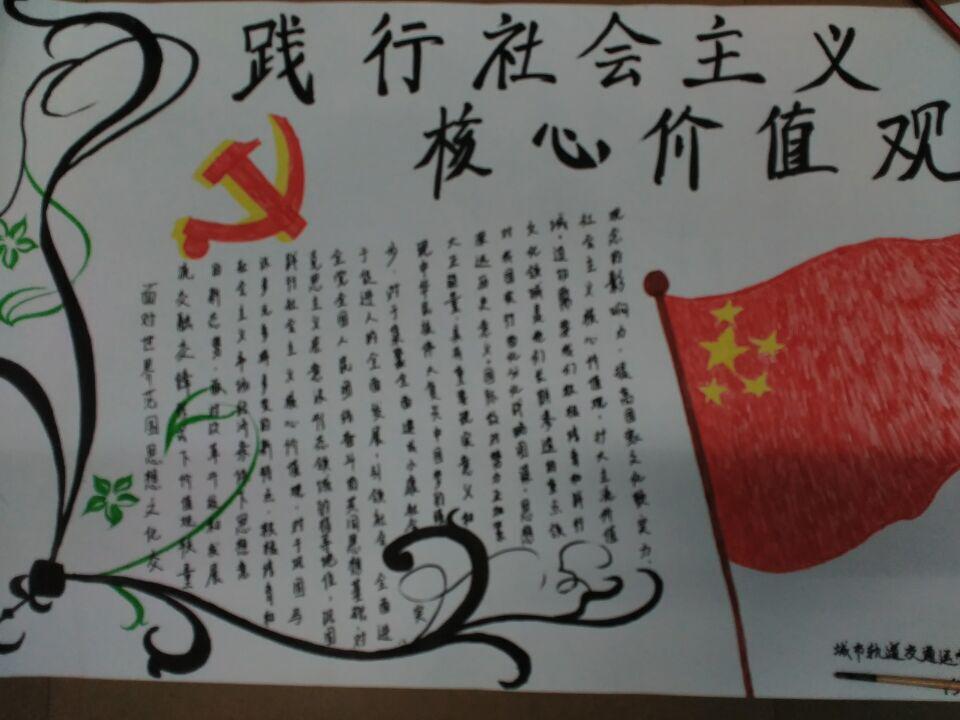 践行社会主义
核心价值观
面对世界范围思想文化交
流交融交锋形势下价值观较量
的新态势,面对改革开放和发展
社会主义市场经济条件下思想意
识多元多样多变的新特点,积极培育和
践行社会主义核心价值观,对于巩固马
克思主义在意识形态领域的指导地位、巩固
全党全国人民团结奋斗的共同思想基础,对
于促进人的全面发展、引领社会全面进
步,对于集聚全面建成小康社会、实
现中华民族伟大复兴中国梦的
大正能量,具有重要现实意义和
深远历史意义。国际敌对势力正加紧
对我国实行西化分化战略图谋,思想
文化领域是他们长期渗透的重点领
域。这就需要我们积极培育和践行
社会主义核心价值观,扩大主流价值
观念的影响力,提高国家文化软实力。
城市轨道交通运